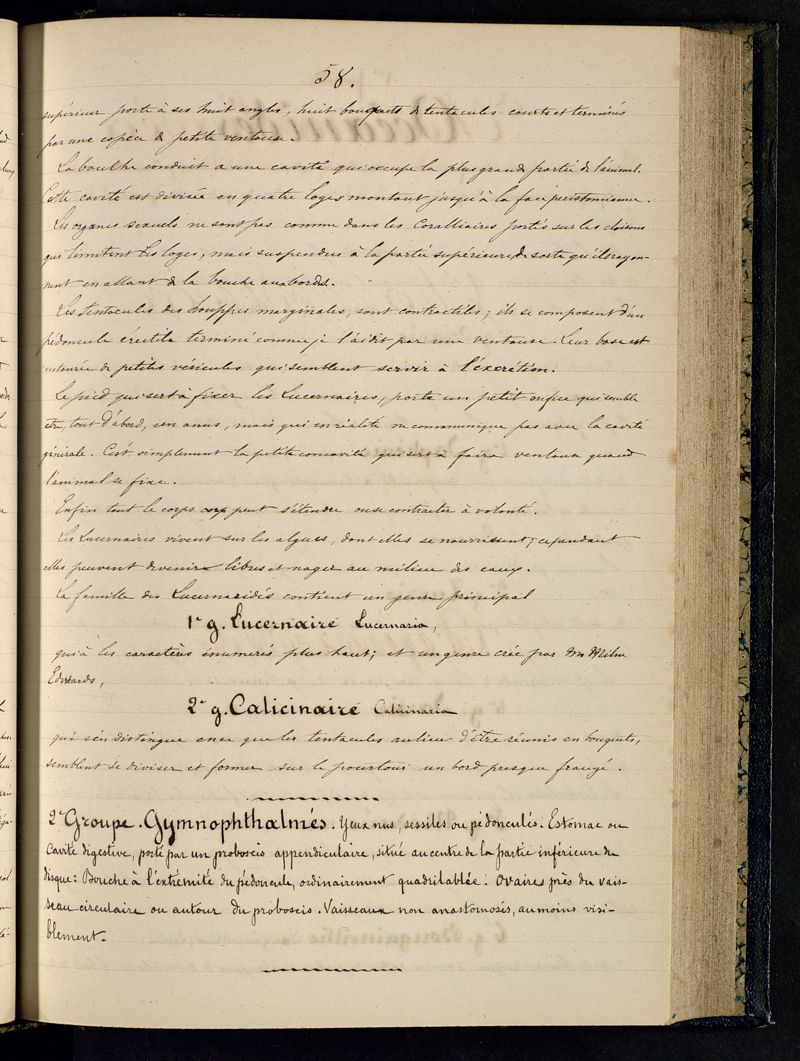 58.
supérieur porte à ses huit angles, huit bouquets de tentacules courts et terminés
par une espèce de petite ventouse.
La bouche conduit a une cavité qui occupe la plus grande partie de l'animal.
Cette cavité est divisée en quatre loges montant jusqu'à la face peristomienne.
Les organes sexuels ne sont pas comme dans les Coralliaires portés sur les cloisons
qui limitent les loges, mais suspendus à la partie supérieure, de sorte qu'ils rayon-
nent en allant de la bouche aux bords.
Les tentacules des houppes marginales, sont contractiles; ils se composent d'un
pédoncule érectile terminé comme je l'ai dit par une ventouse. Leur base est
entourée de petites vésicules qui semblent servir à l'éxcrétion.
Le pied qui sert à fixer les Lucernaires, porte un petit orifice qui semble
être, tout d'abord, un anus, mais qui en réalité ne communique pas avec la cavité
générale. C'est simplement la petite concavité qui sert à faire ventouse quand
l'animal se fixe.
Enfin tout le corps peut s'étendre ou se contracter à volonté.
Les Lucernaires vivent sur les algues, dont elles se nourrissent; cependant
elles peuvent devenir libres et nager au milieu des eaux.
La famille des Lucernaridés contient un genre principal
1er g. Lucernaire Lucernaria,
qui à les caractères énumerés plus haut; et un genre créé par Mr Milne
Edwards,
2e g. Calicinaire Calicinaria
qui s'en distingue en ce que les tentacules au lieu d'être réunis en bouquets,
semblent se diviser et former sur le pourtour un bord presque frangé.
2e Groupe. Gymnophthalmés. Yeux nus, sessiles ou pédonculés. Estomac ou
cavité digestive, porté par un proboscis appendiculaire, situé au centre de la partie inférieure du
disque: Bouche à l'extrémité du pédoncule, ordinairement quadrilablée. Ovaires près du vais-
seau circulaire ou autour du proboscis. Vaisseaux non anastomosés, au moins visi-
blement.